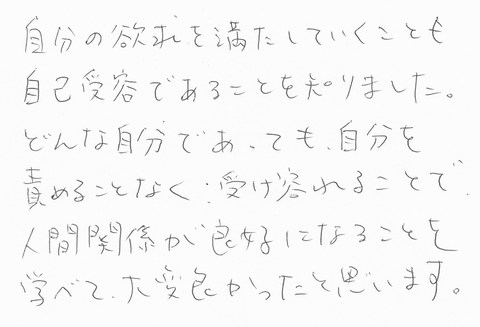 自分の欲求を満たしていくことも
自己受容であることを知りました。
どんな自分であっても、自分を
責めることなく、受け容れることで、
人間関係が良好になることを
学べて、大変良かったと思います。